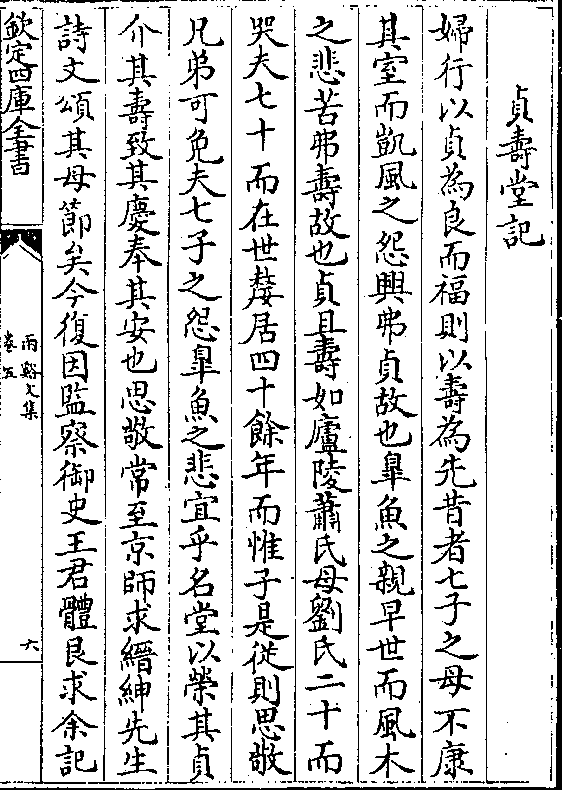 貞壽堂記
婦行以貞為良而福則以壽為先昔者七子之母不康
其室而凱風之怨興弗貞故也臯魚之親早世而風木
之悲苦弗壽故也貞且壽如廬陵蕭氏母劉氏二十而
哭夫七十而在世嫠居四十餘年而惟子是從則思敬
兄弟可免夫七子之怨臯魚之悲宜乎名堂以榮其貞
介其壽致其慶奉其安也思敬常至京師求縉紳先生
詩文頌其母節矣今復因監察御史王君體良求余記
欽定四庫全書
兩谿文集
卷五
六